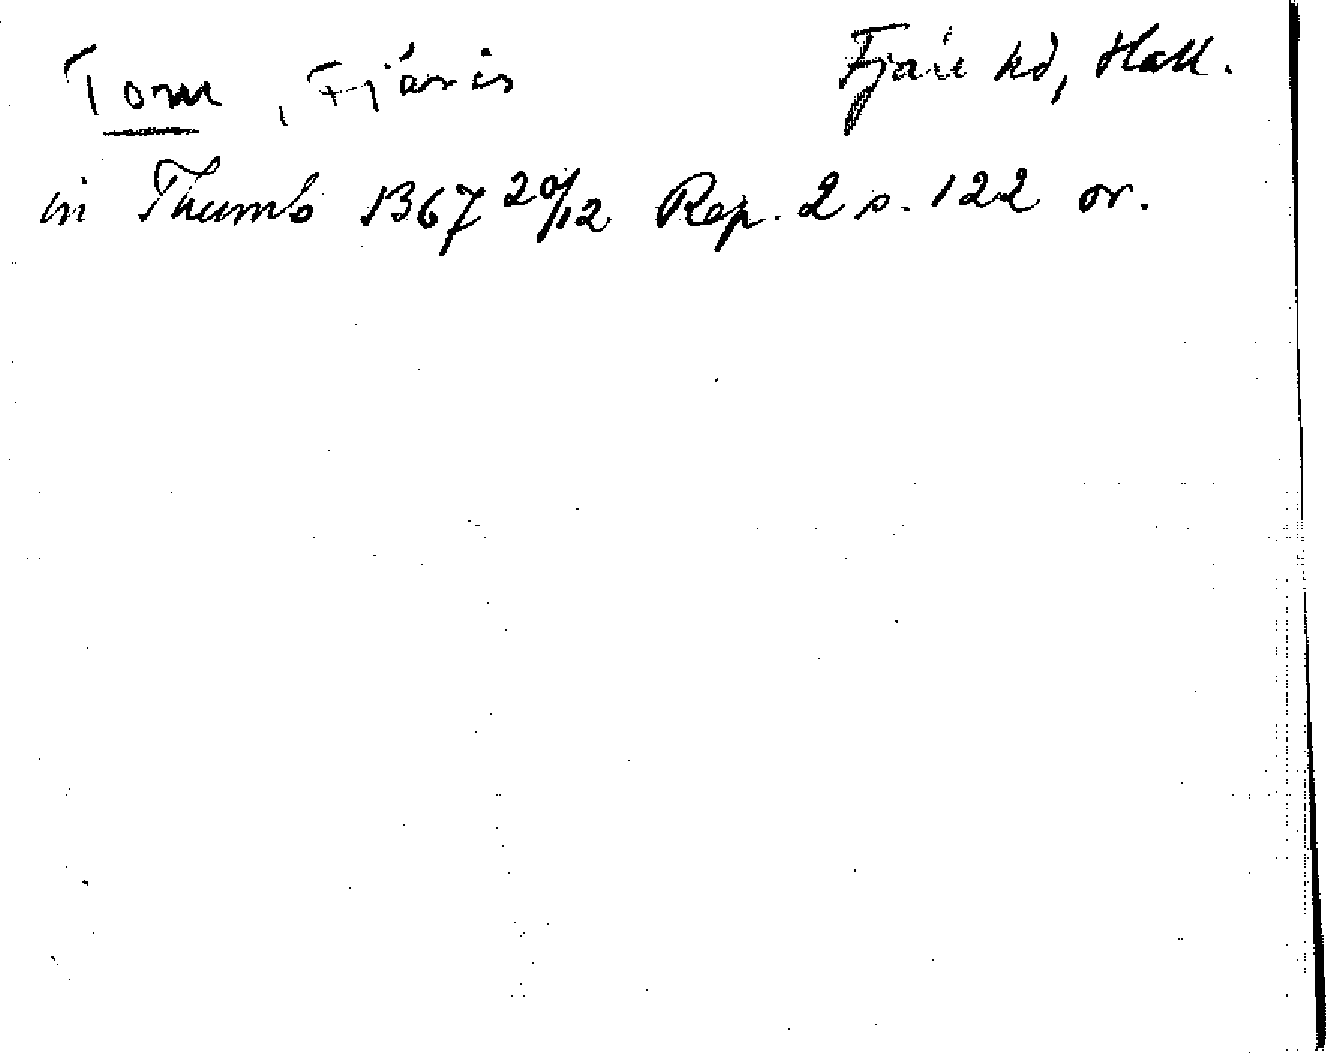 Tom, Fjärås Fjäre hd, Hall.
in Thumb 1367 20/12 Rep. 2 s. 122 or.